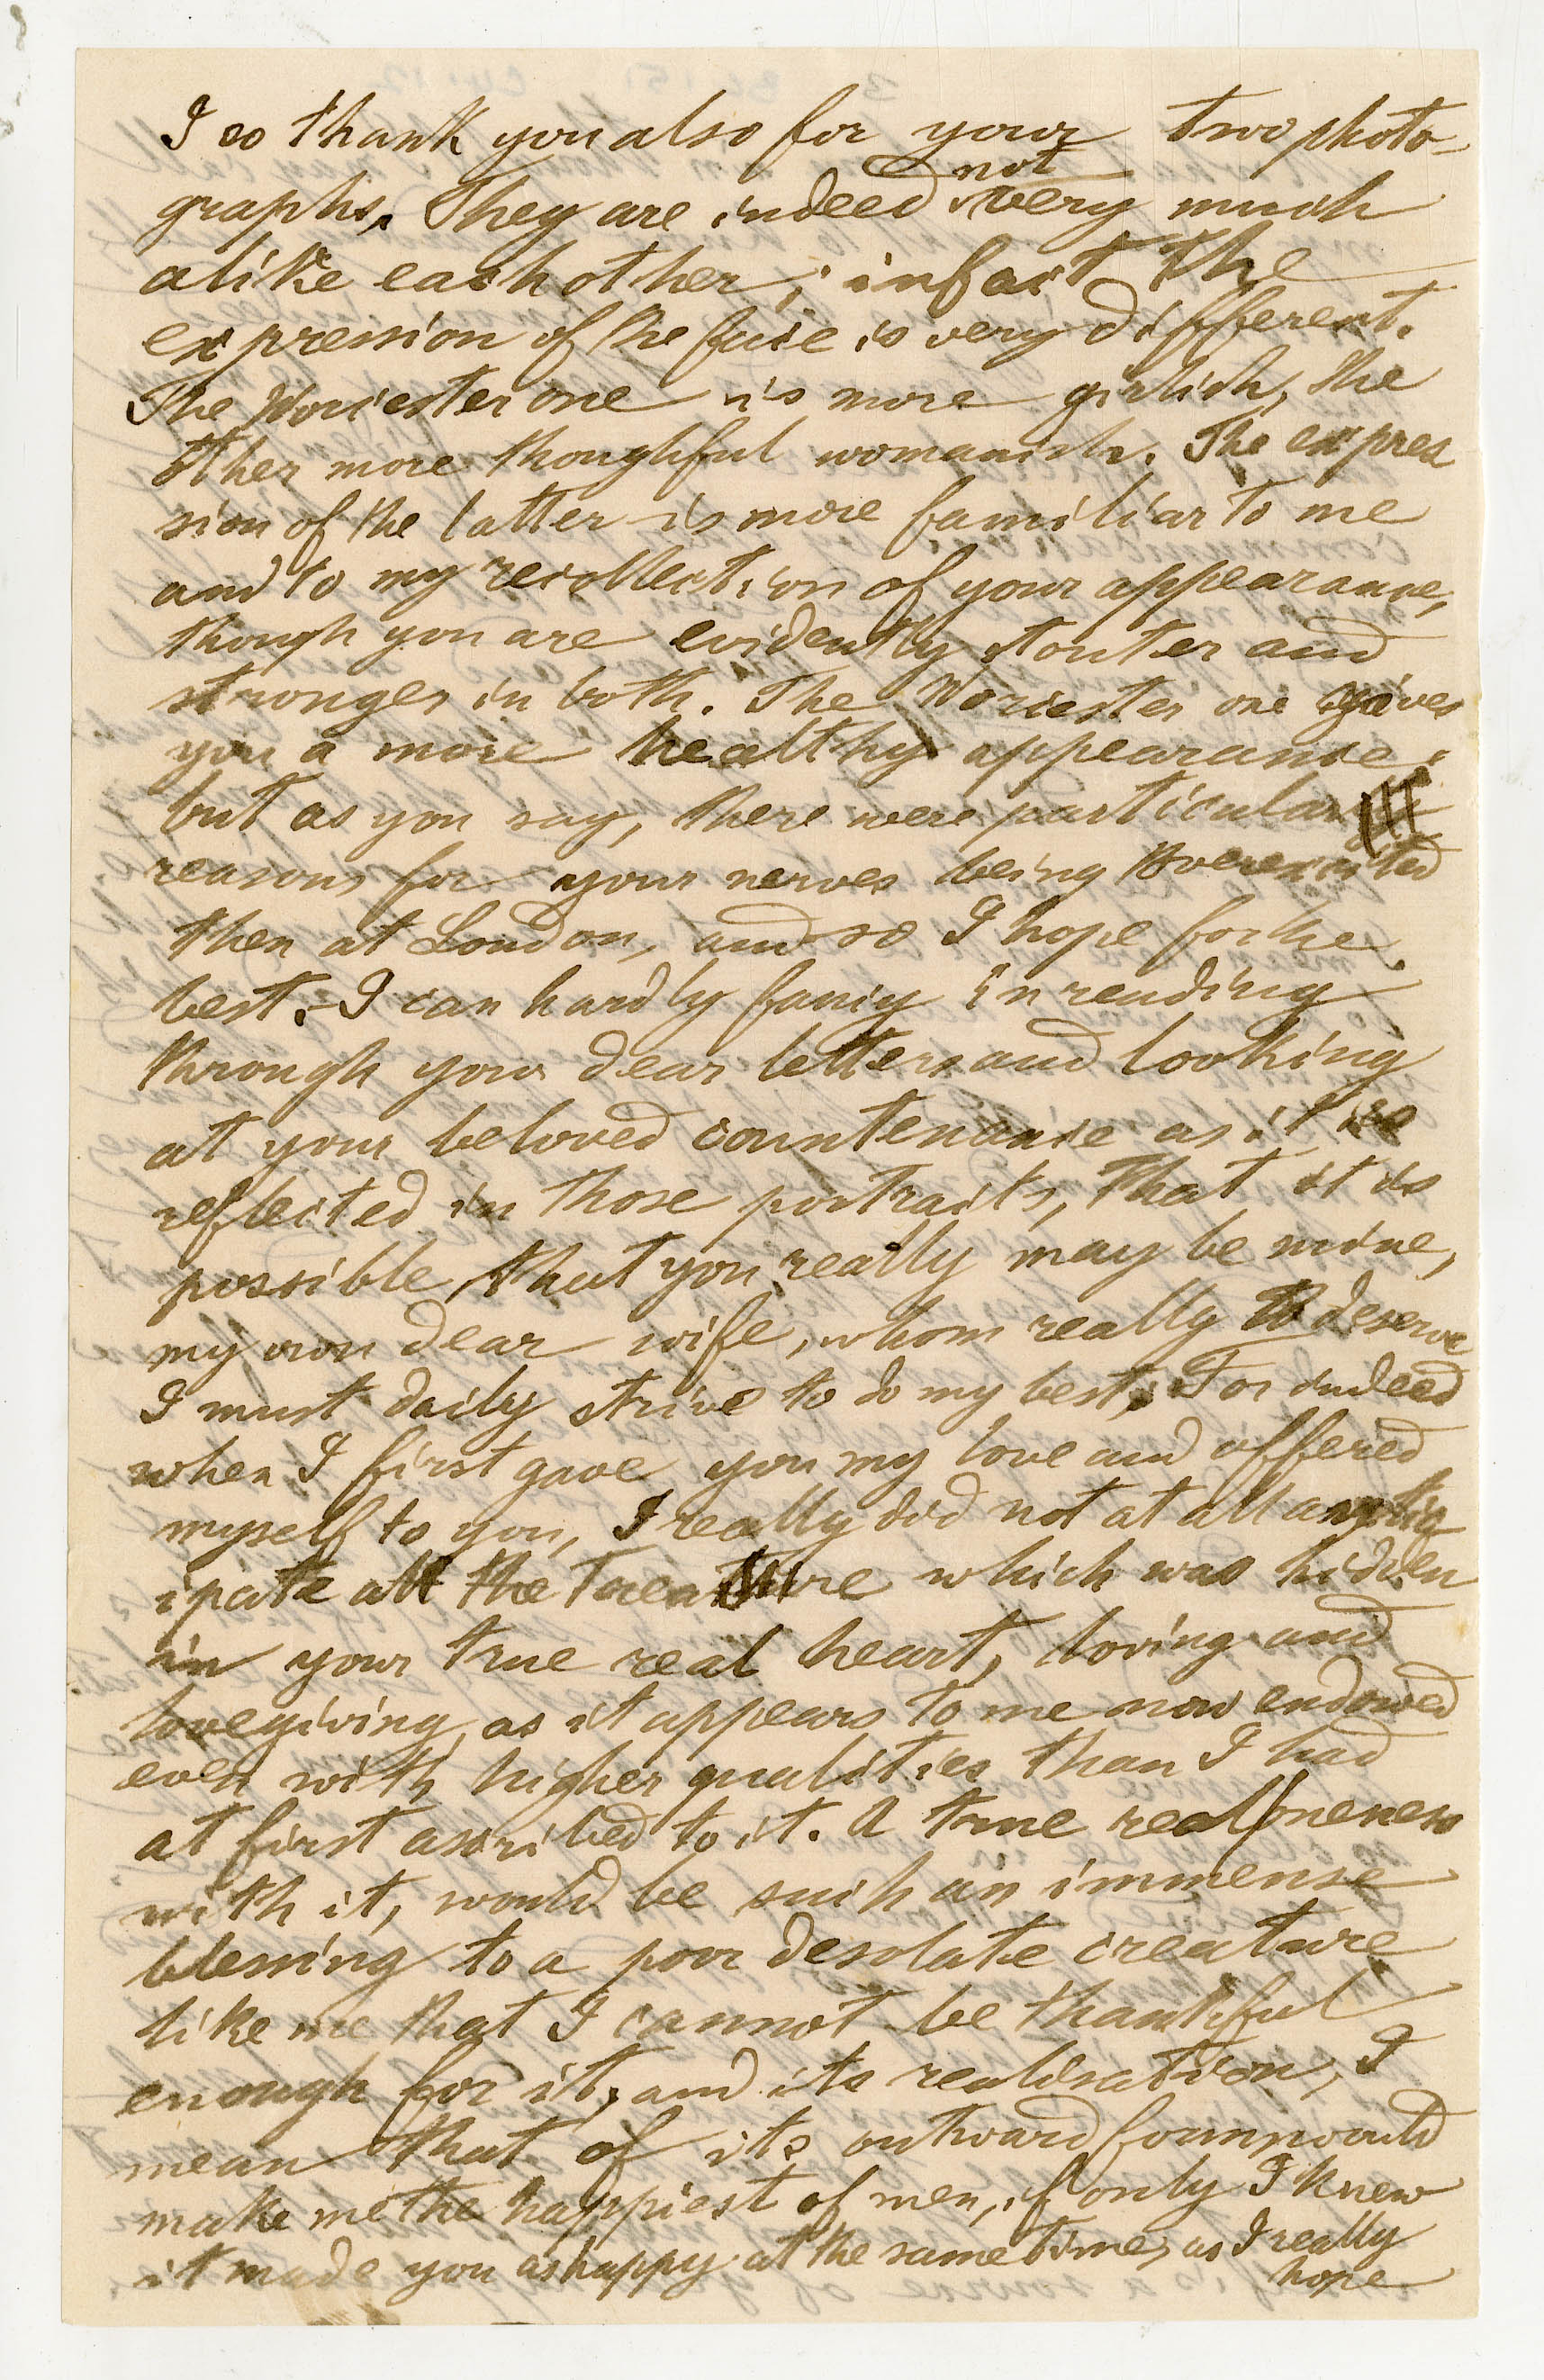 I so thank you also for your two photo-
graphs. They are indeed not very much
alike each other; infact the
expression of the face is very different.
The Worcester one is more girlish, the
other more thoughful womanish. The expres
sion of the latter is more familiar to me
and to my recollection of your appearance,
though you are evidently stouter and
stronger in both. The Worcester one gives
you a more healthy appearance.
but as you say, there were particular
reasons for your nerves being overexcited
then at London, and so I hope for the
best. - I can hardly fancy in reading
through your dear letters and looking
at your beloved countenance as it is
reflected in those portraits, that it is
possible, that you really may be mine,
my own dear wife, whom really to deserve
I must daily strive to do my best. For indeed
when I first gave you my love and offered
myself to you, I really did not at all antic
ipate all the treasure which was hidden
in your true real heart, loving and
lovegiving, as it appears to me now endowed
even with higher qualities than I had
at first ascribed to it. A true real oneness
with it, would be such an immense
blessing to a poor desolate creature
like me that I cannot be thankful
enough for it, and its realisation, I
mean that of its outward form would
make me the happiest of men, if only I knew
it made you as happy at the same time, as I really
hope